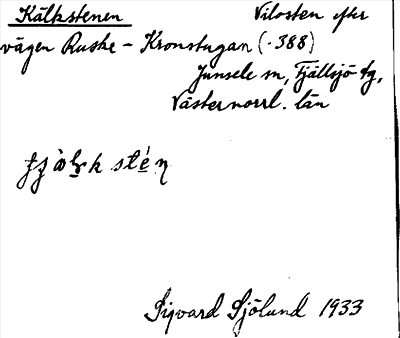 Kälkstenen Vilosten efter
vägen Ruske - Kronstugan (·388)
Junsele sn, Fjällsjö tg,
Västernorrl. län
Sigvard Sjölund 1933